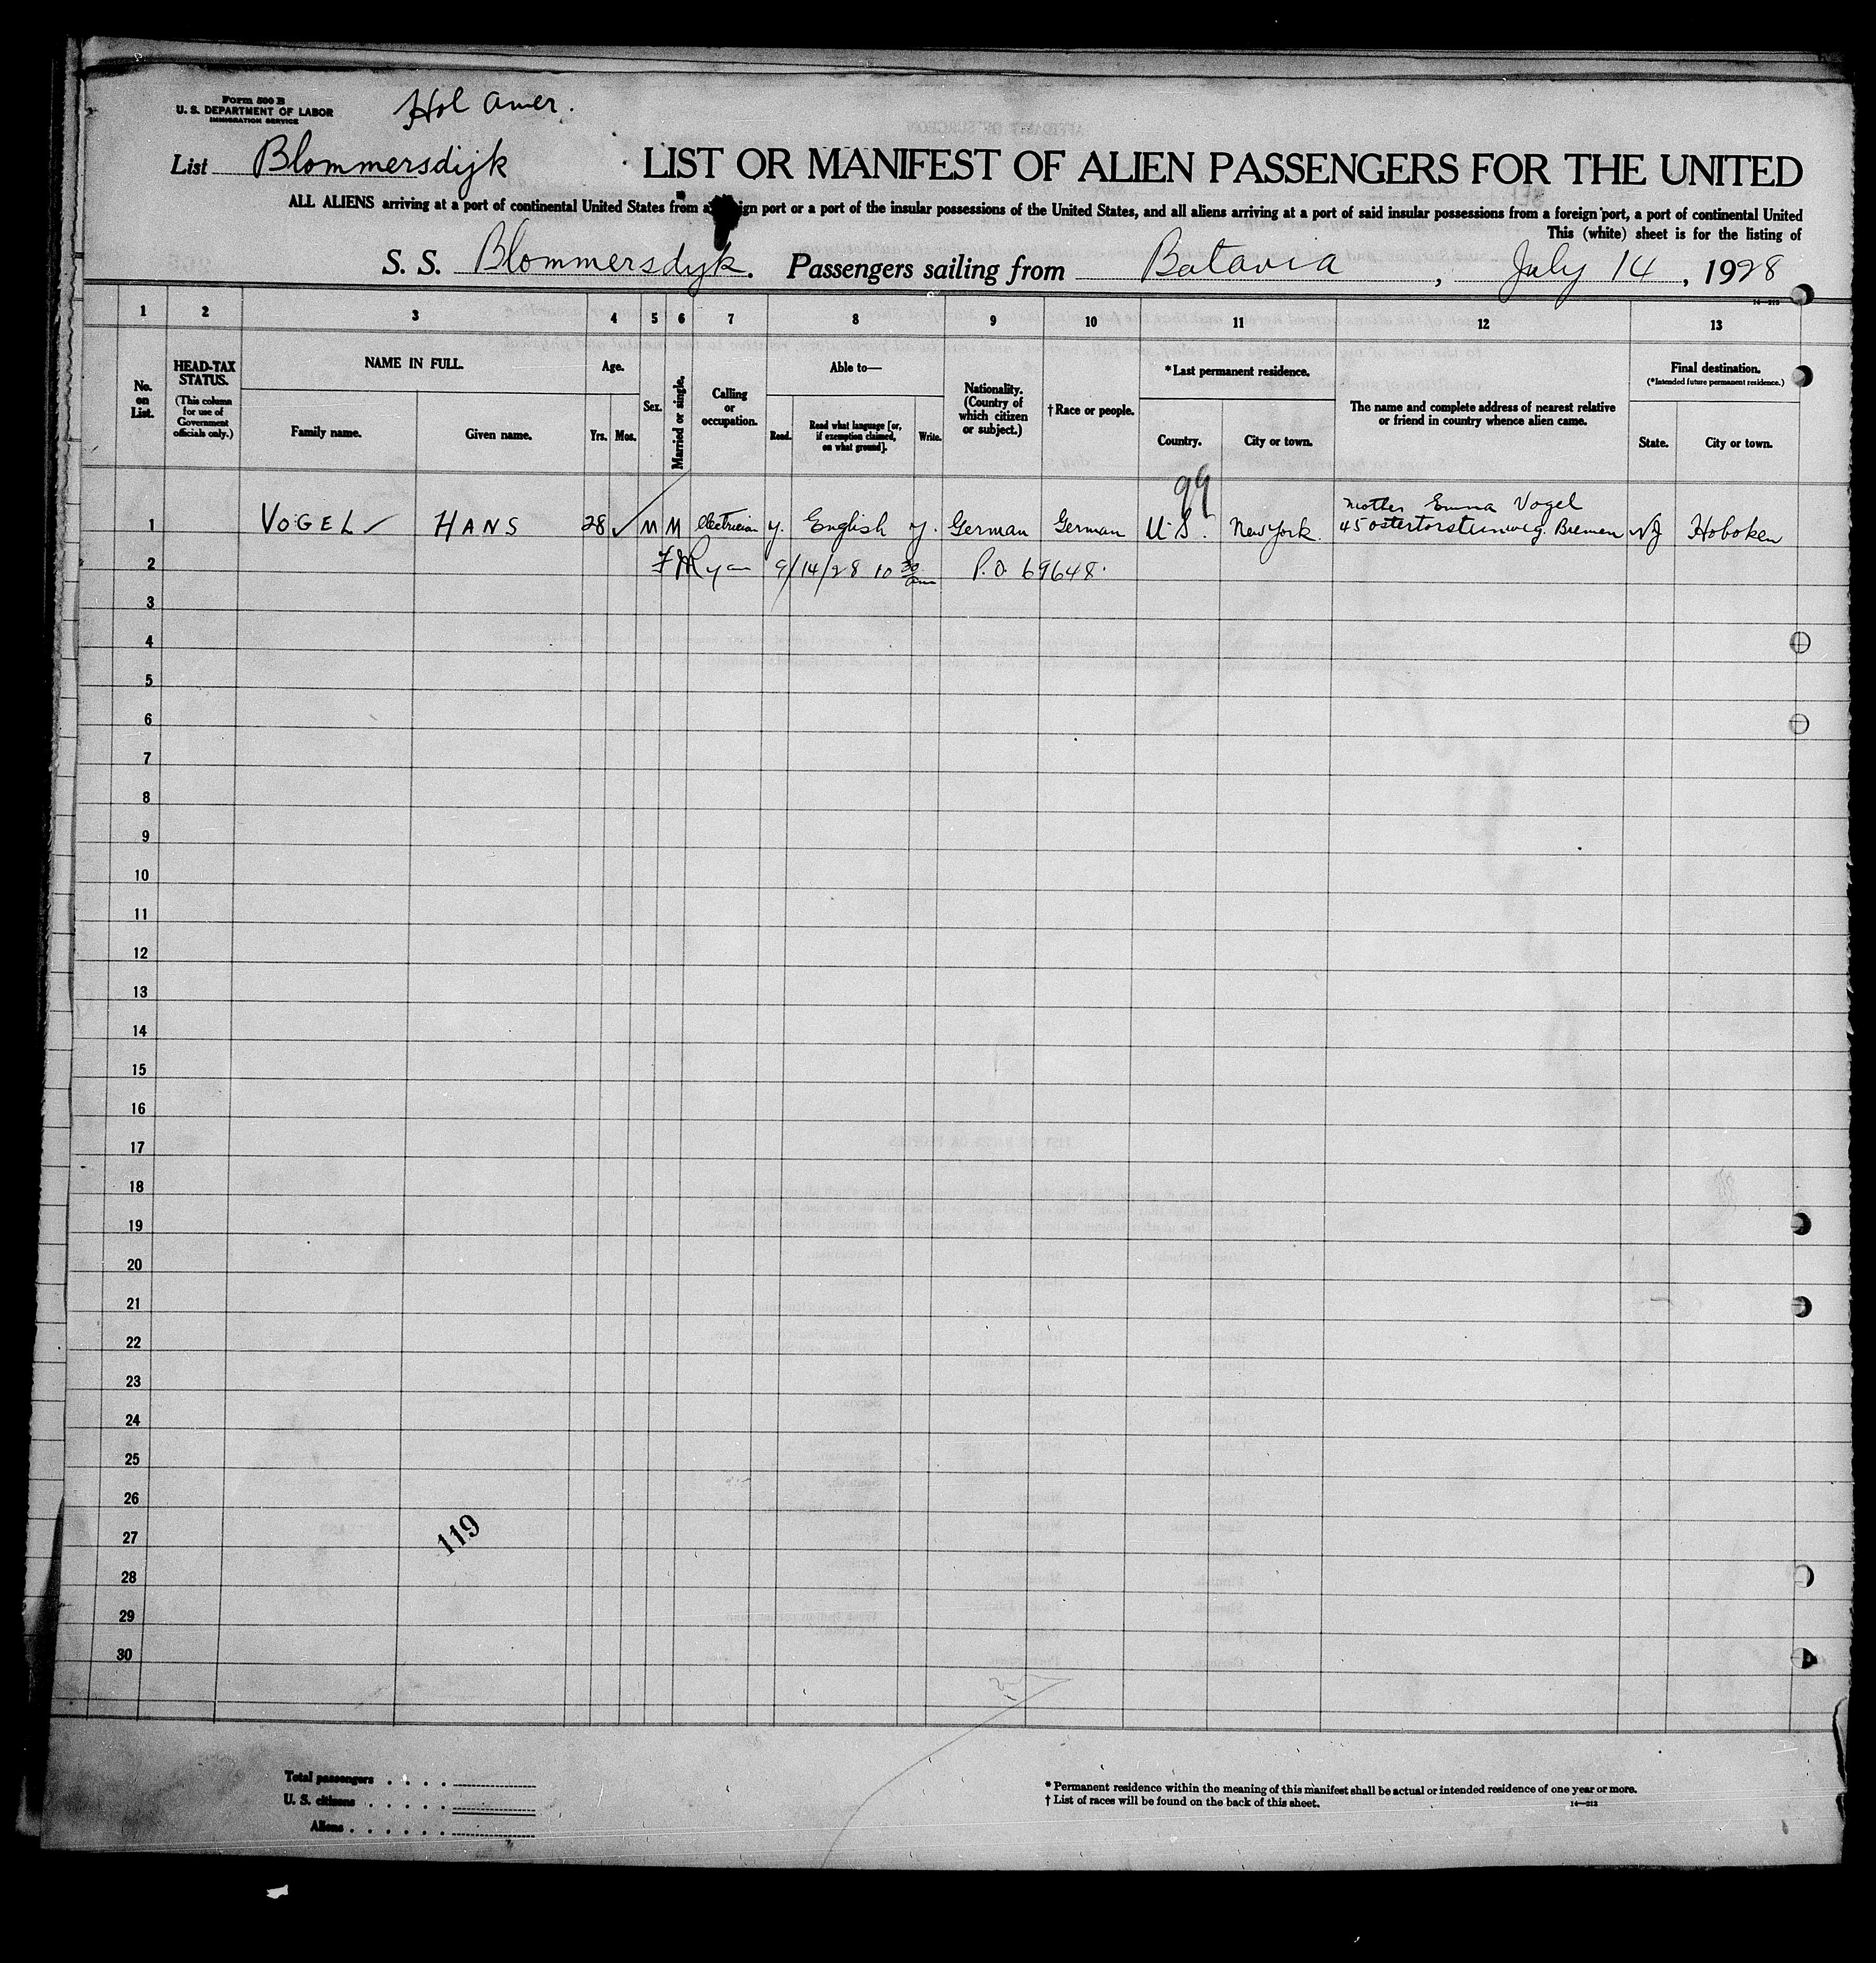 Form 500 B
U. S. DEPARTMENT OF LABOR
IMMIGRATION SERVICE
Hol Amer.
List Blommersdijk
LIST OR MANIFEST OF ALIEN PASSENGERS FOR THE UNITED
ALL ALIENS arriving at a port of continental United States from a ign port or a port of the insular possessions of the United States, and all aliens arriving at a port of said insular possessions from a foreign port, a port of continental United
This (white) sheet is for the listing of
S. S. Blommersdyk. Passengers sailing from Batavia, July 14, 1928
1 2 3 4 5 6 7 8 9 10 11 12 13
No. on List.
HEAD-TAX STATUS.
(This column for use of Government officials only.)
NAME IN FULL.
Family name. Given name.
Age.
Yrs. Mos.
Sex.
Married or single.
Calling or occupation.
Able to—
Read. Read what language [or, if exemption claimed, on what ground]. Write.
Nationality. (Country of which citizen or subject.)
†Race or people.
*Last permanent residence.
Country. City or town.
The name and complete address of nearest relative or friend in country whence alien came.
Final destination.
(*Intended future permanent residence.)
State. City or town.
99
mother Emma Vogel
1 VOGEL ✓ HANS 28 ✓ M M electrician y. English y. German German U.S. New York. 45 Ostertorsteinweg. Bremen NJ Hoboken
2 Ryan 9/14/28 10 30 am P.O. 69648.
3
4
5
6
7
8
9
10
11
12
13
14
15
16
17
18
19
20
21
22
23
24
25
26
27
119
28
29
30
Total passengers
U. S. citizens
Aliens
* Permanent residence within the meaning of this manifest shall be actual or intended residence of one year or more.
† List of races will be found on the back of this sheet.
14—212